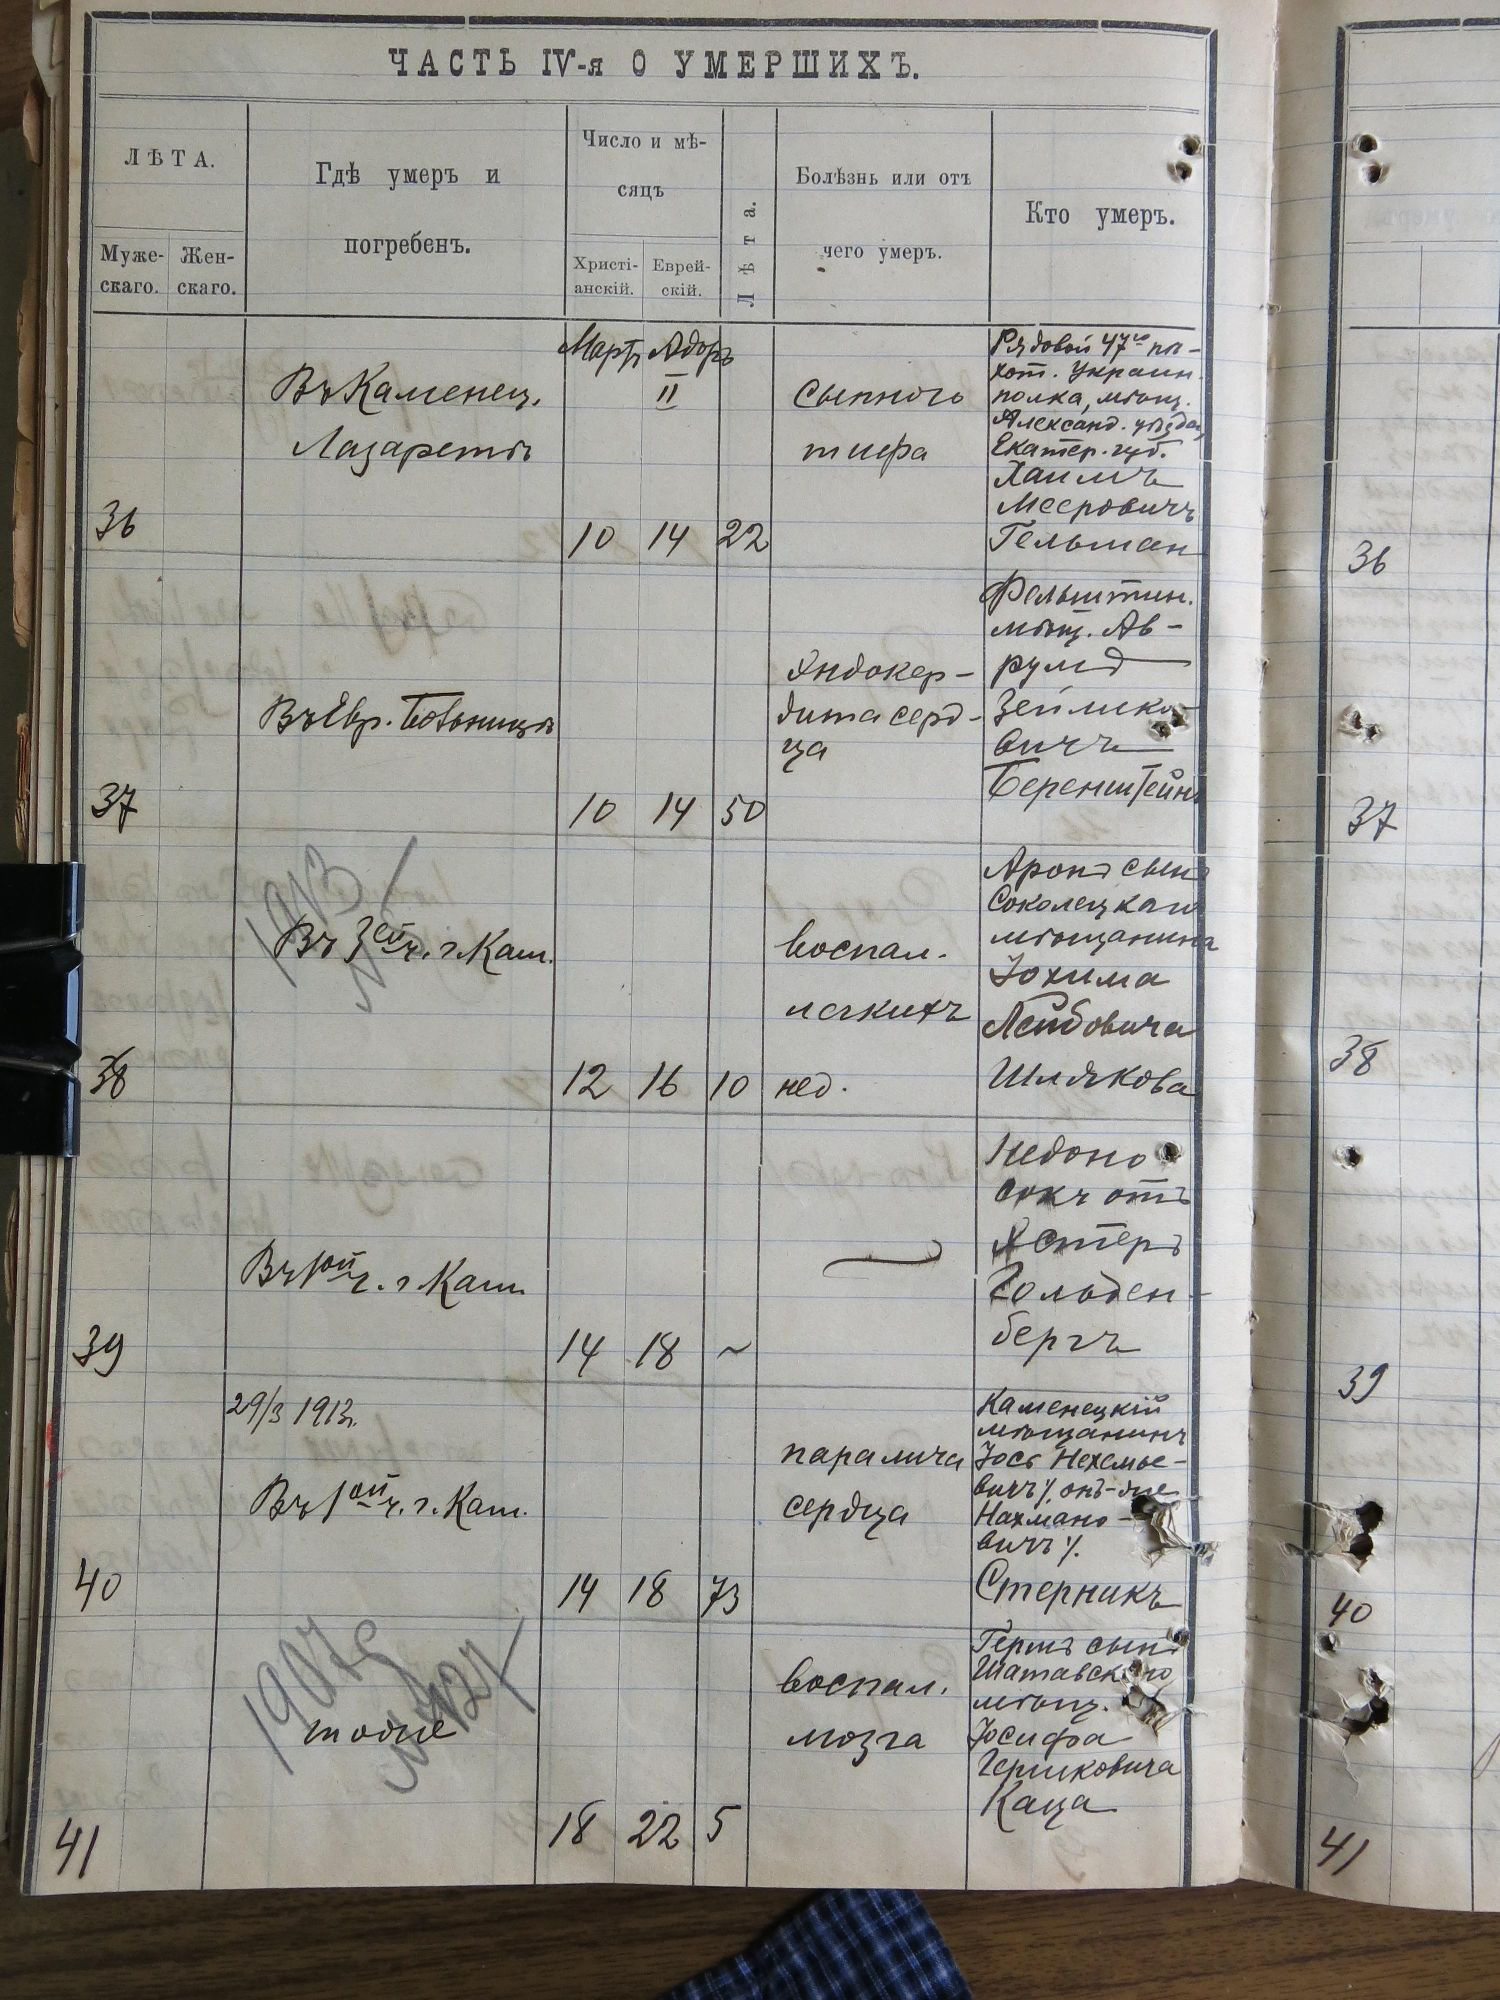 ЧАСТЬ IV-я О УМЕРШИХЪ.
ЛѢТА.
Муже-
скаго.
Жен-
скаго.
Гдѣ умеръ и
погребенъ.
Число и мѣ-
сяцъ
Христі-
анскій.
Еврей-
скій.
Лѣта.
Болѣзнь или отъ
чего умеръ.
Кто умеръ.
Мартъ Адаръ
II
36
Въ Каменец.
Лазаретѣ
10 14 22
сыпного
тифа
Рядовой 47го пѣ-
хот. Украин.
полка, мѣщ.
Александ. уѣзда,
Екатер. губ.
Хаимъ
Мееровичъ
Гельман
36
37
Въ Евр. Больницѣ
10 14 50
Эндокер-
дита серд-
ца
Фельштин.
мѣщ. Ав-
румъ
Зейлико-
вичъ
Беренштейнъ
37
1913
38
Въ 3ей ч. г. Кам.
12 16 10 нед.
воспал.
легкихъ
Аронъ сынъ
Соколецкаго
мѣщанина
Іохима
Лейбовича
Шлякова
38
39
Въ 1ой ч. г. Кам.
14 18 ~
Недоно
сокъ отъ
Эстеръ
Гольден-
бергъ
39
29/3 1913г.
40
Въ 1ой ч. г. Кам.
14 18 73
паралича
сердца
Каменецкій
мѣщанинъ
Іось Нехемье-
вичъ /. онъ-же
Нахмано-
вичъ /.
Стерникъ
40
1907г
№427
41
тоже
18 22 5
воспал.
мозга
Гершъ сынъ
Шатавскаго
мѣщ.
Іосифа
Гершковича
Каца
41